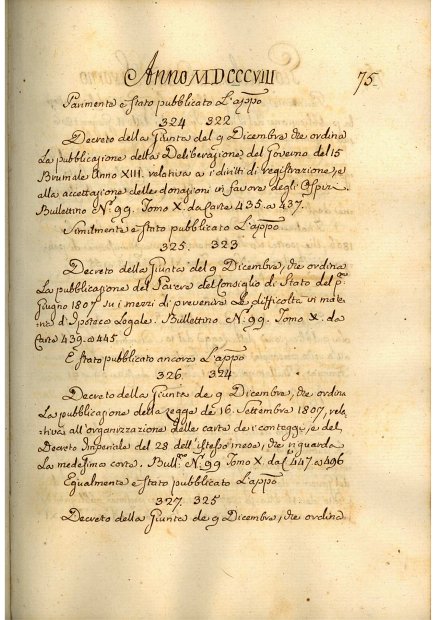 Anno MDCCCVIII 75.
Parimente è stato pubblicato L'appo
324 322
Decreto della Giunta del 9 Dicembre, che ordina
La pubblicazione della Deliberazione del Governo del 15
Brumale Anno XIII. relativa a i diritti di registrazione, e
alla accettazione delle donazioni in favore degli Ospizi.
Bullettino N.º 99. Tomo X. da Carte 435. a 437.
Similmente è stato pubblicato L'appo
325. 323
Decreto della Giunta del 9 Dicembre, che ordina
La pubblicazione del Parere del Consiglio di Stato del pº
Giugno 1807 su i mezzi di prevenire Le difficoltà in mate
ria d'Ipoteca Legale. Bullettino N.º 99. Tomo X. da
Carte 439. a 445
È stato pubblicato ancora L'appo
326. 324
Decreto della Giunta de 9 Dicembre, che ordina
La pubblicazione della Legge de 16. Settembre 1807, rela
tiva all'organizzazione delle carte de i conteggi, e del
Decreto Imperiale del 28 dell'istesso mese, che riguarda
La medesima corte. Bull.no N.º 99 Tomo X. da C. 447. a 496
Egualmente è stato pubblicato L'appo
327. 325
Decreto della Giunta de 9 Dicembre, che ordina